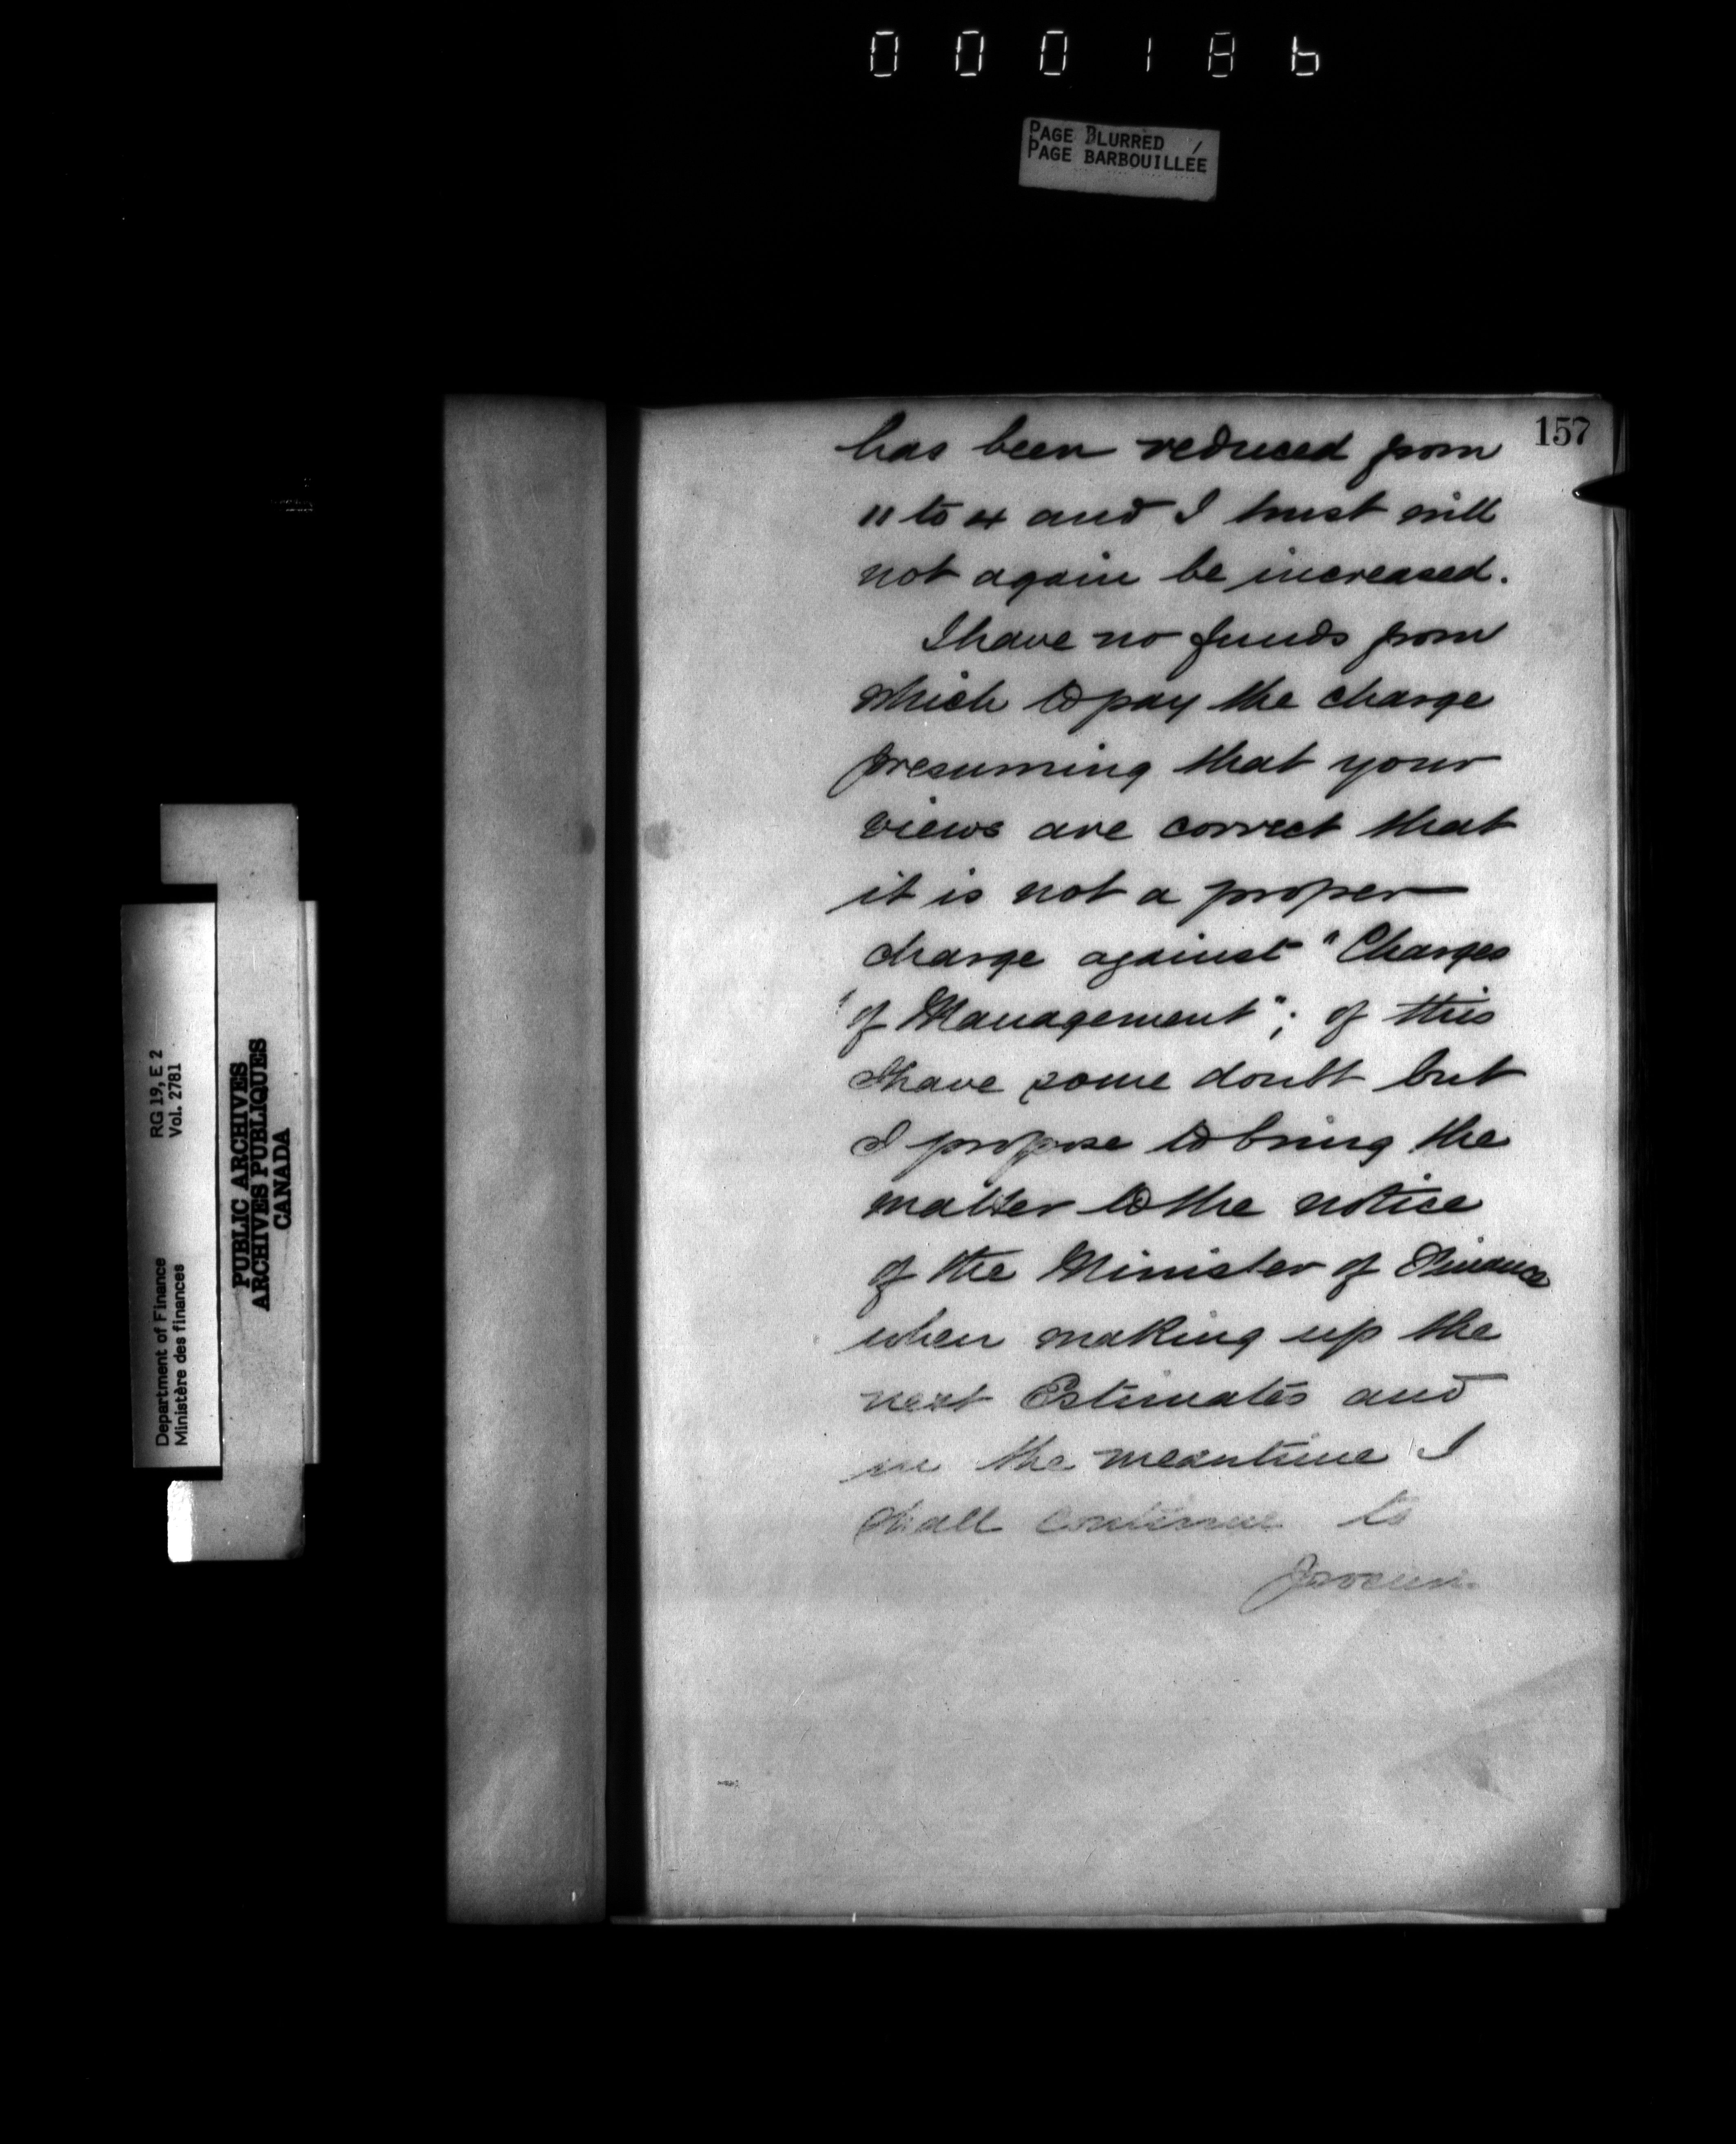 000186
PAGE BLURRED
PAGE BARBOUILLÉE
157
has been reduced from
11 to 4 and I trust will
not again be increased.
I have no funds from
which to pay the charge
presuming that your
views are correct that
it is not a proper
charge against "Charges
"of Management"; of this
I have some doubt but
I propose to bring the
matter to the notice
of the Minister of Finance
when making up the
next Estimates and
in the meantime I
shall continue to
RG 19, E 2
Vol. 2781
Department of Finance
Ministère des finances
PUBLIC ARCHIVES
ARCHIVES PUBLIQUES
CANADA